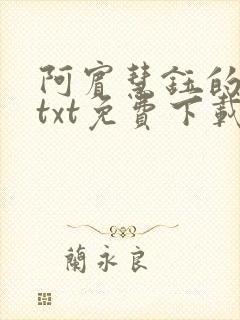 阿賓慧鈺的
txt免費下載
蘭永良